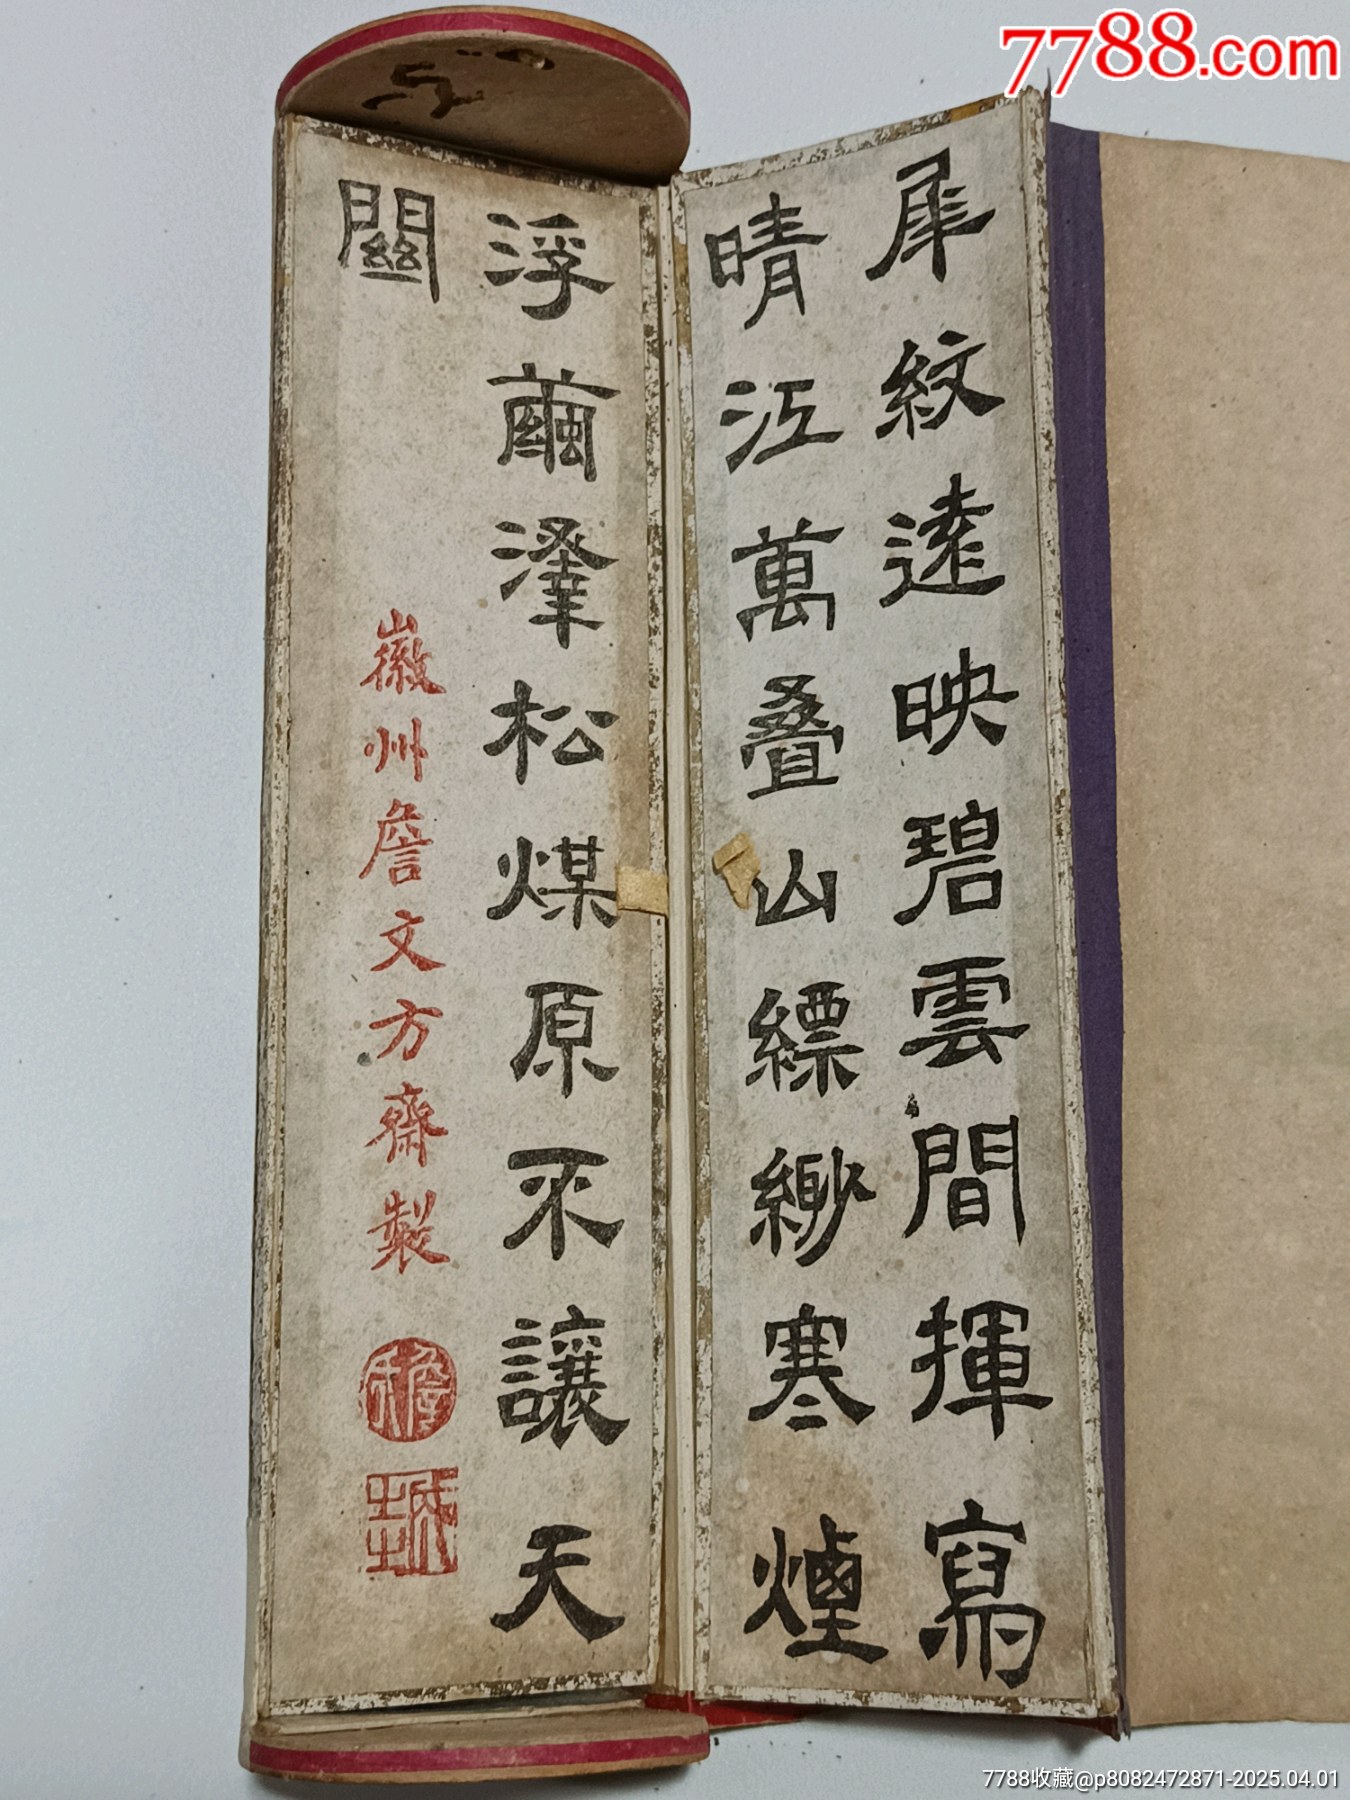 7788.com
犀紋遠映碧雲間揮寫
晴江萬叠山縹緲寒煙
浮繭澤松煤原不讓天
關
徽州詹文方齋製
7788收藏@p8082472871-2025.04.01